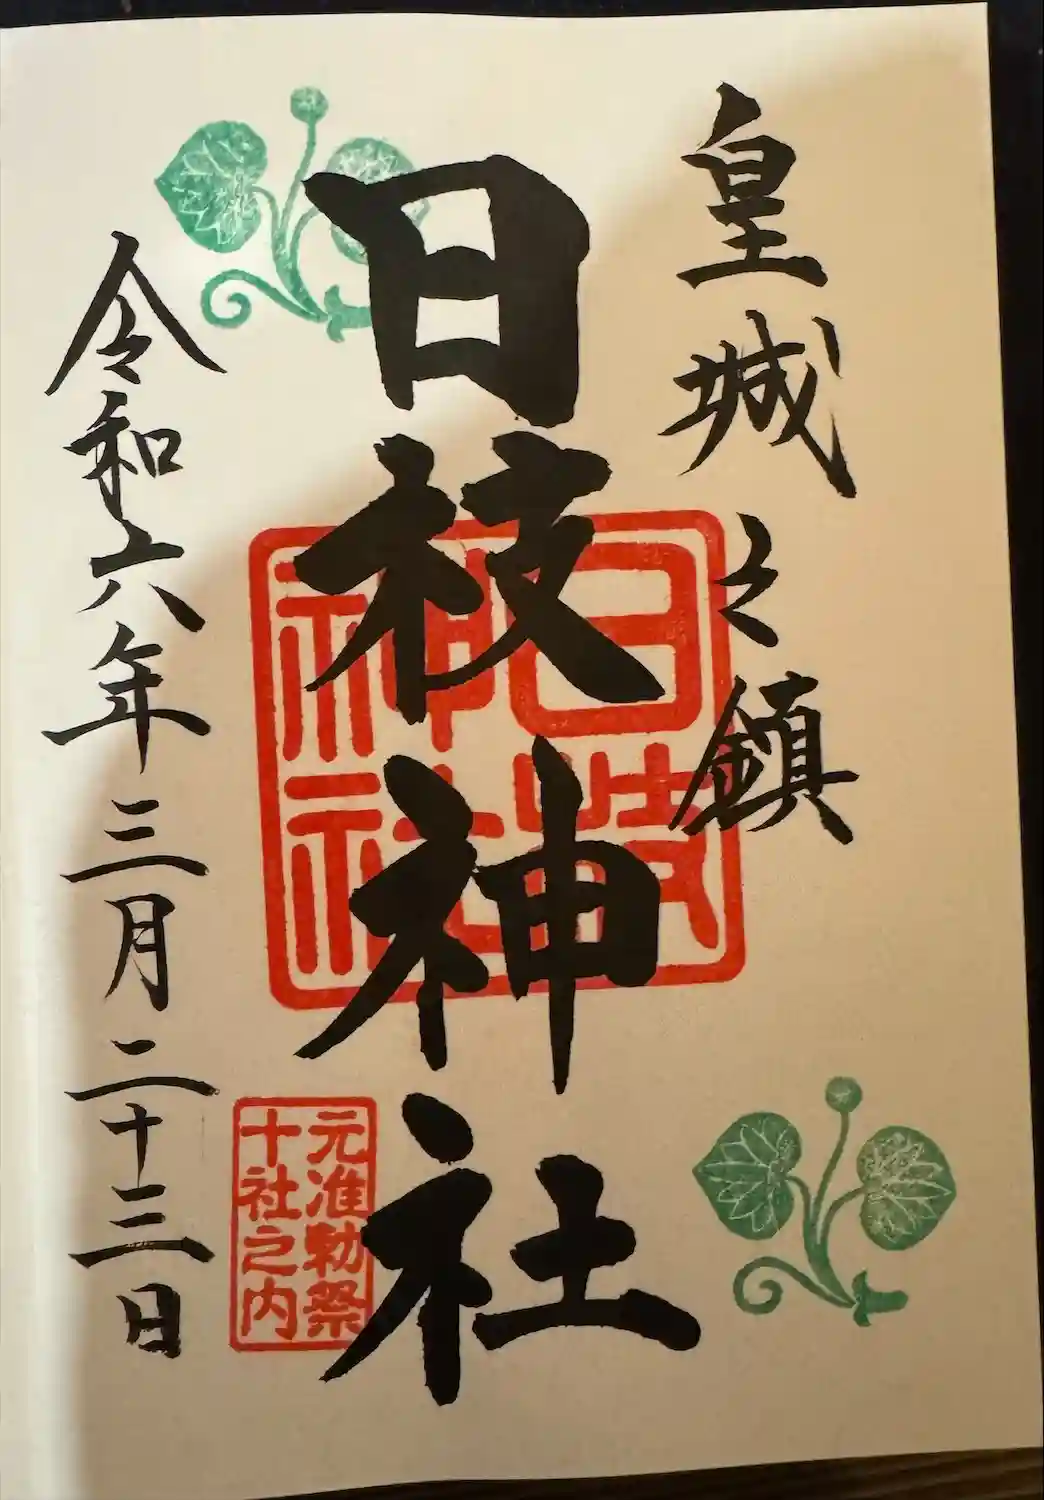 皇城之鎮
日枝神社
日枝
神社
元准勅祭
十社之内
令和六年三月二十三日